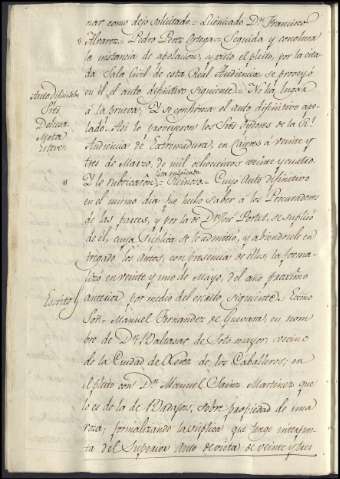 nar como dejo solicitado = Licenciado Dn. Francisco
Alvarez = Pedro Perez Ortega = Seguida y conclusa
la instancia de apelacion, y visto el pleito, por la cita
da Sala Civil de esta Real Audiencia se proveyó
en él, el auto difinitivo siguiente = No há lugar
á la prueva; Y se confirma el auto difinitivo ape
lado. Asi lo proveyeron los Sres. de la Rl.
Audiencia de Extremadura; en Caceres a veinte y
tres de Marzo, de mil ochocientos veinte y cuatro
Y lo rubricaron = Cuyo Auto difinitivo
en el mismo dia fue hecho saber á los Procuradores
de las partes, y por la de Dn. José Portel, se suplicó
de él, cuya suplica se le admitio, y abiendosele en
tregado los autos, con presencia de ellos la forma
lizó en veinte y uno de Mayo, del año proximo
anterior por medio del escrito siguiente = Exmo
Sor. = Manuel Fernandez de Guevara, en nom
bre de Dn. Baltasar de Soto mayor, vecino
de la Ciudad de Xerez de los Caballeros; en
el pleito con Dn. Manuel Sainz Martinez que
lo es de la de Badajoz, sobre propiedad de una
formalizando la suplica que tengo interpues
ta del Supremo Auto de vista de veinte y tres
Auto difinitivo
Sres.
Escrito